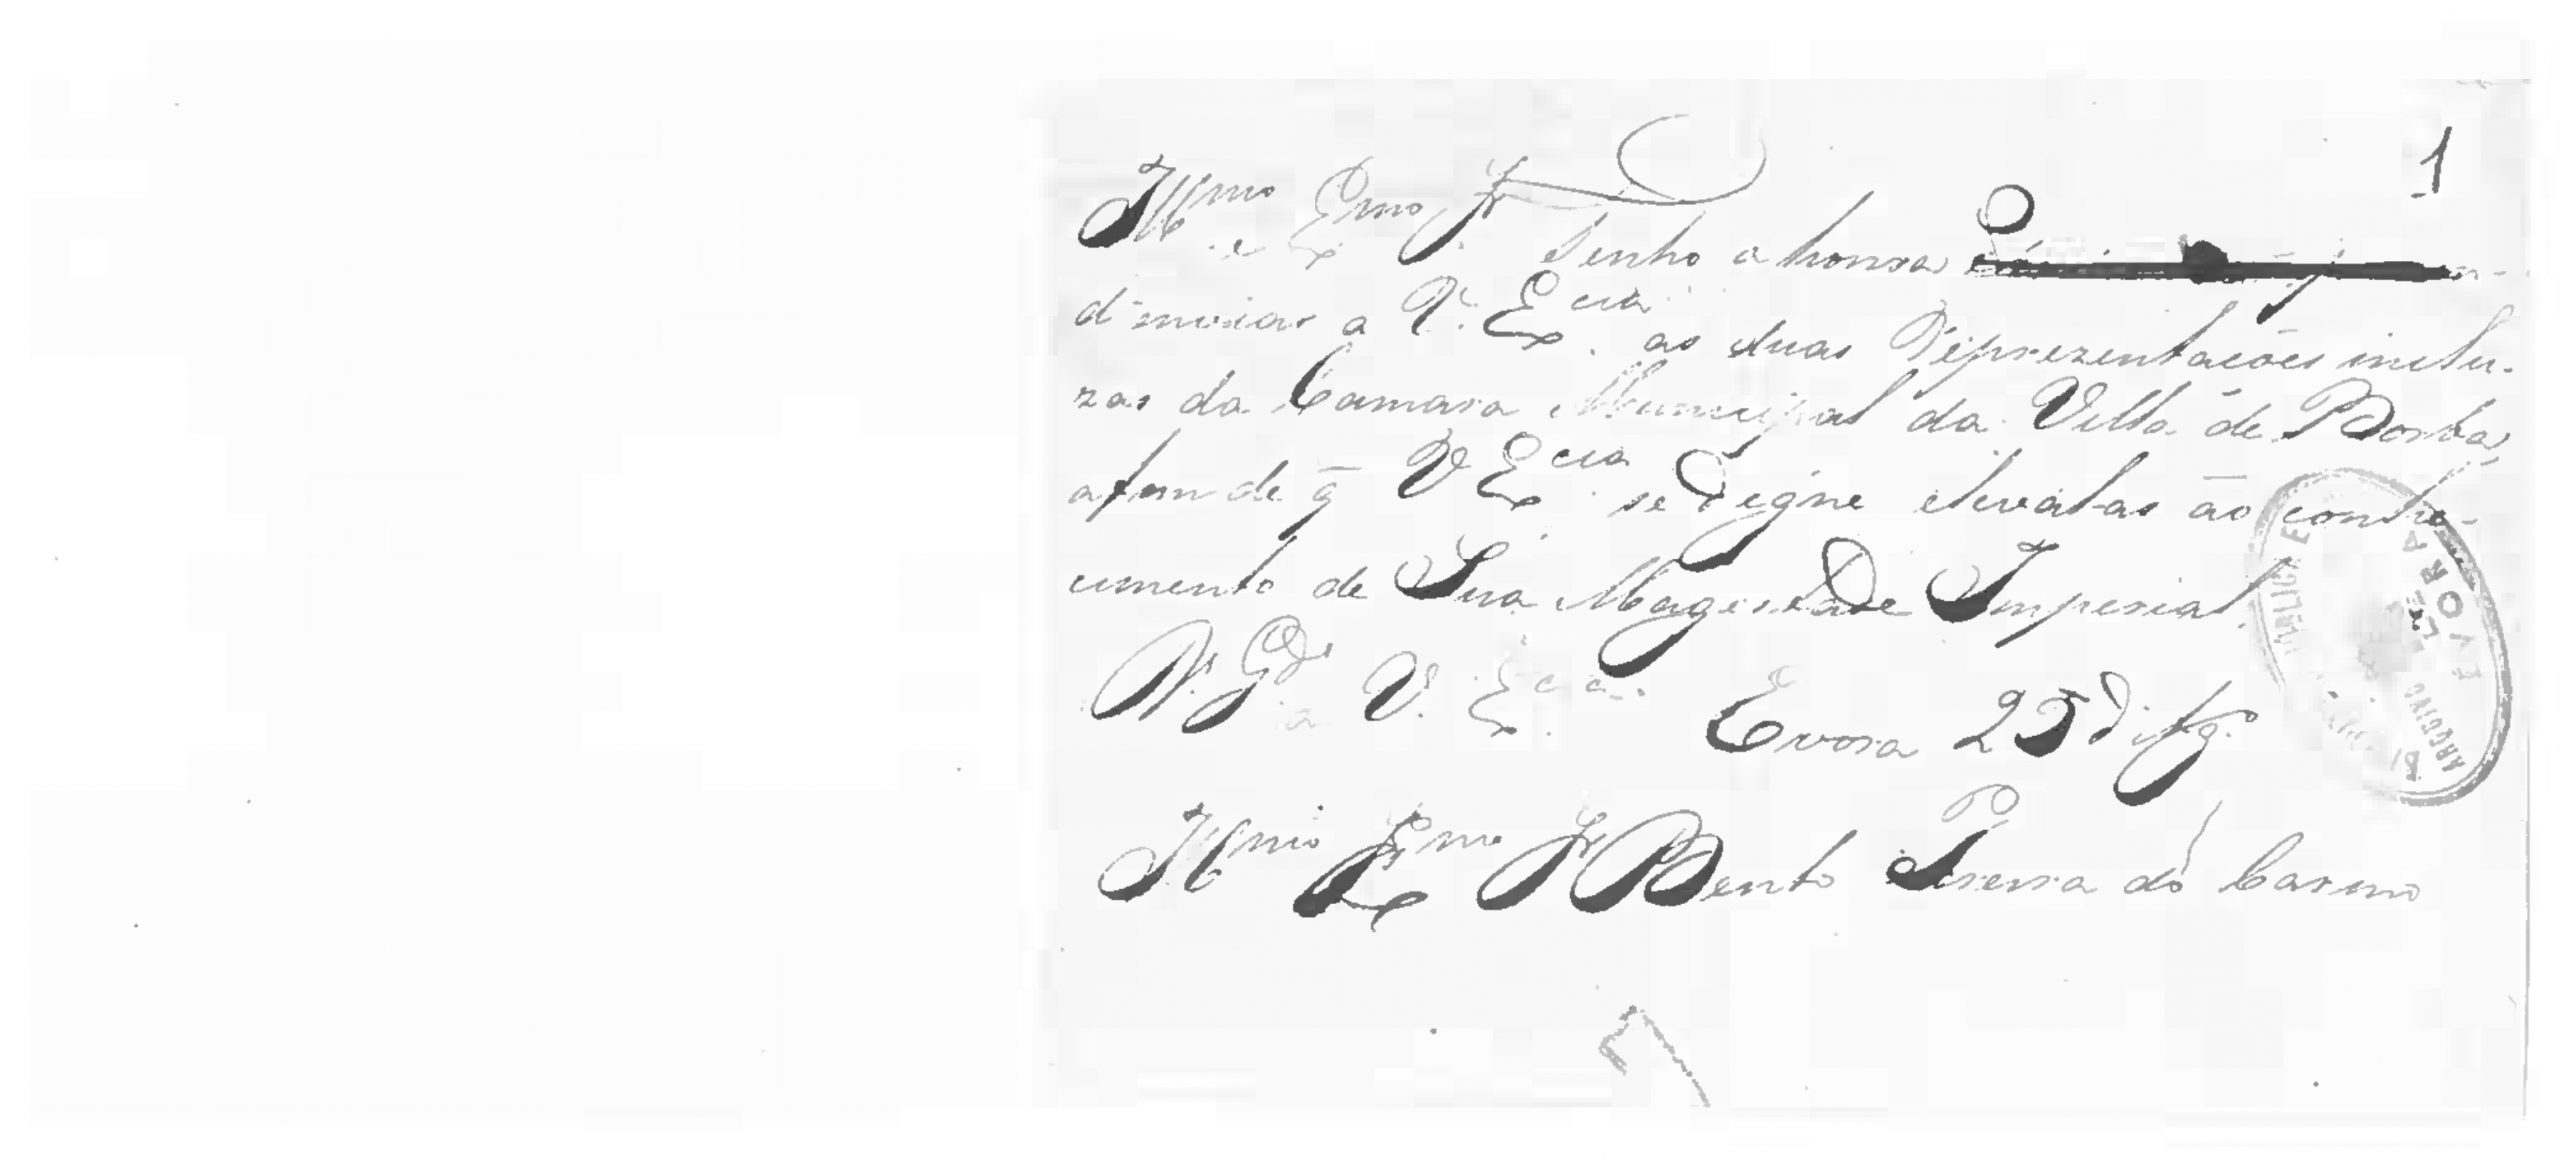 1
Illmo e Exmo Sr. Tenho a honra
d'inviar a V. Excia as duas Reprezentacões inclu-
zas da Camara Municipal da Villa de Borba,
afim de q̄ V Excia se Digne eleval-as ao conhe-
cimento de Sua Magestade Imperial.
Ds. Gde a V. Exca. Evora 25 d'Ag.
Illmo Exmo Sr Bento Pereira do Carmo
EVORA
ARQUIVO